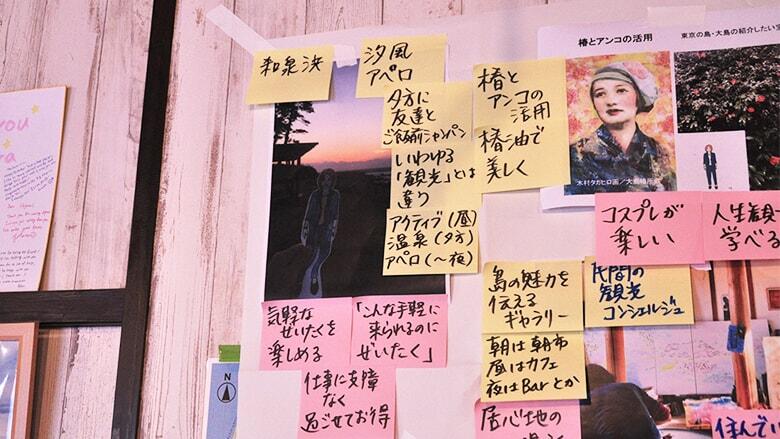 you
和泉浜
汐風
アペロ
夕方に
友達と
ご飯前シャンパン
いわゆる
「観光」とは
違う
アクティブ(昼)
温泉(夕方)
アペロ(〜夜)
椿と
アンコの
活用
椿油で
美しく
椿とアンコの活用
東京の島・大島の紹介したい宝
木村タカヒロ画/大島椿所
コスプレが
楽しい
人生観
学べる
気軽な
ぜいたくを
楽しめる
「こんな手軽に
来られるのに
ぜいたく」
仕事に支障
なく
過ごせてお得
島の魅力を
伝える
ギャラリー
民間の
観光
コンシェルジュ
朝は朝市
昼はカフェ
夜はBarとか
居心地の
住んでい
N